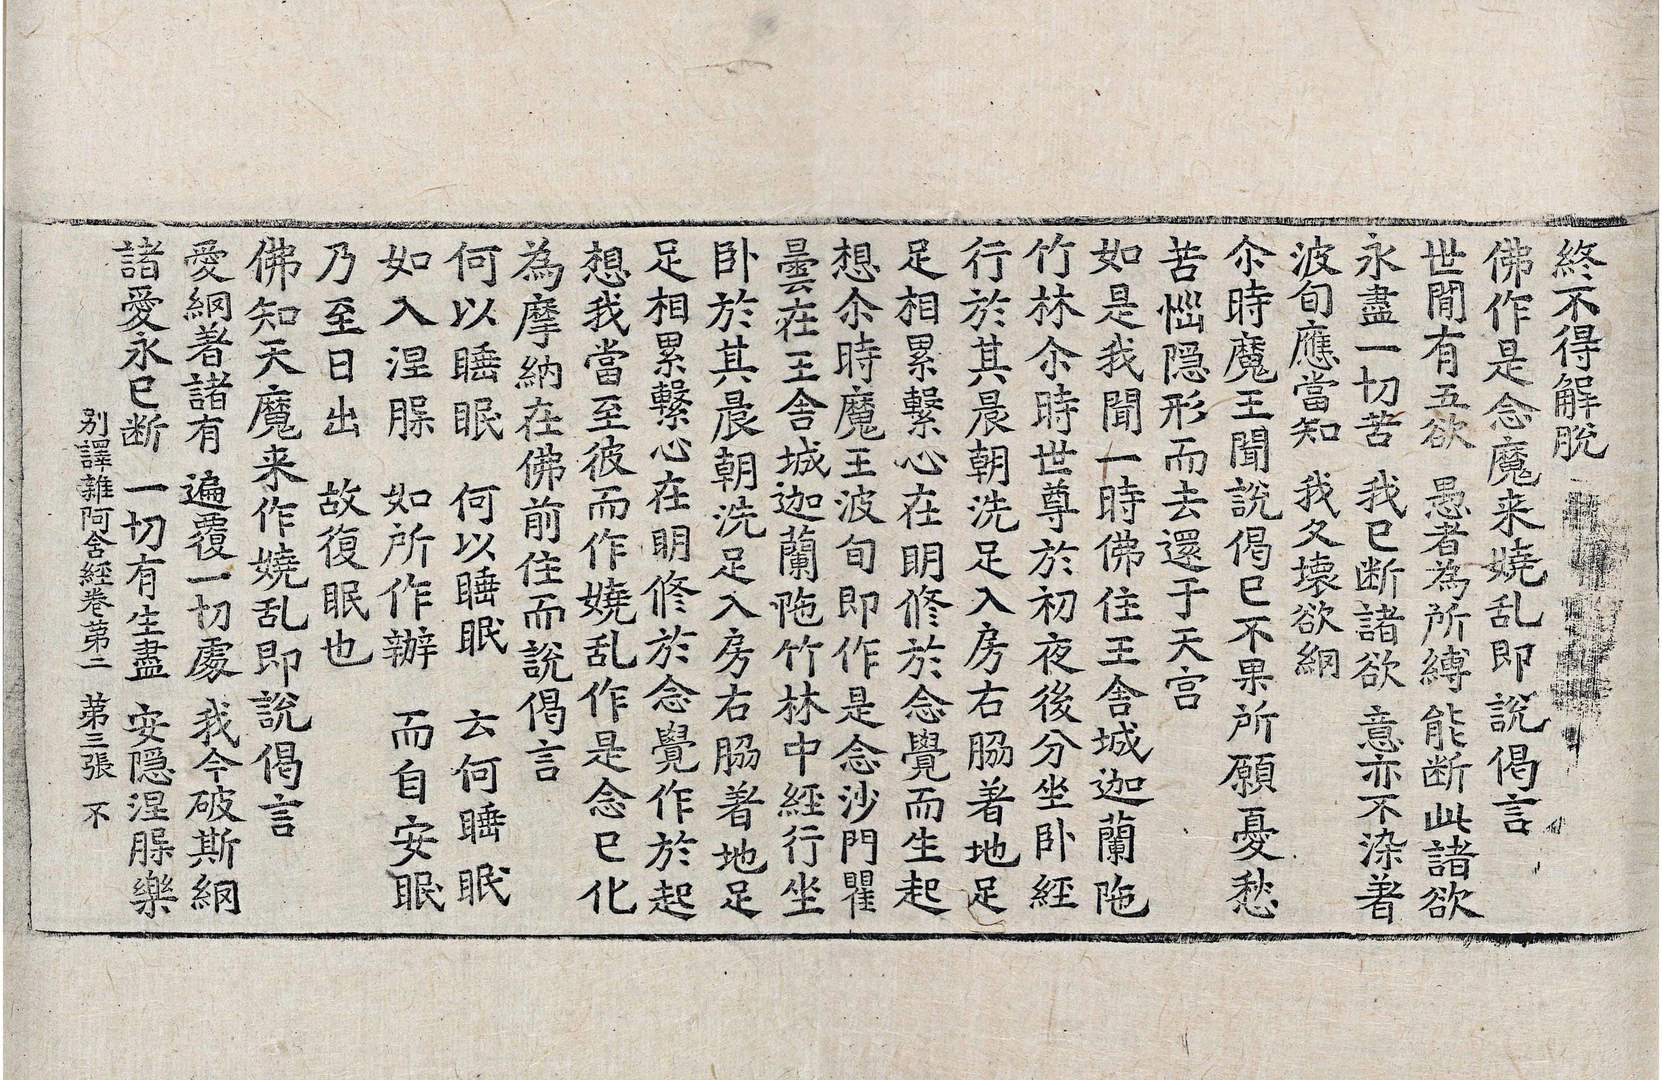 終不得解脫
佛作是念魔来嬈乱即說偈言
世閒有五欲　愚者為所縛　能断此諸欲
永盡一切苦　我已断諸欲　意亦不染著
波旬應當知　我久壊欲網
尒時魔王聞說偈已不果所願憂愁
苦惱隐形而去還于天宫
如是我聞一時佛住王舎城迦蘭陁
竹林尒時世尊於初夜後分坐卧經
行於其晨朝洗足入房右脇著地足
足相累繫心在明修於念覺而生起
想尒時魔王波旬即作是念沙門瞿
曇在王舎城迦蘭陁竹林中經行坐
卧於其晨朝洗足入房右脇著地足
足相累繫心在明修於念覺作於起
想我當至彼而作嬈乱作是念已化
為摩納在佛前住而說偈言
何以睡眠　何以睡眠　云何睡眠
如入涅槃　如所作辦　而自安眠
乃至日出　故復眠也
佛知天魔来作嬈乱即說偈言
愛網著諸有　遍覆一切處　我今破斯網
諸愛永已断　一切有生盡　安隐涅槃樂
別譯雜阿含經卷苐二　苐三張　不